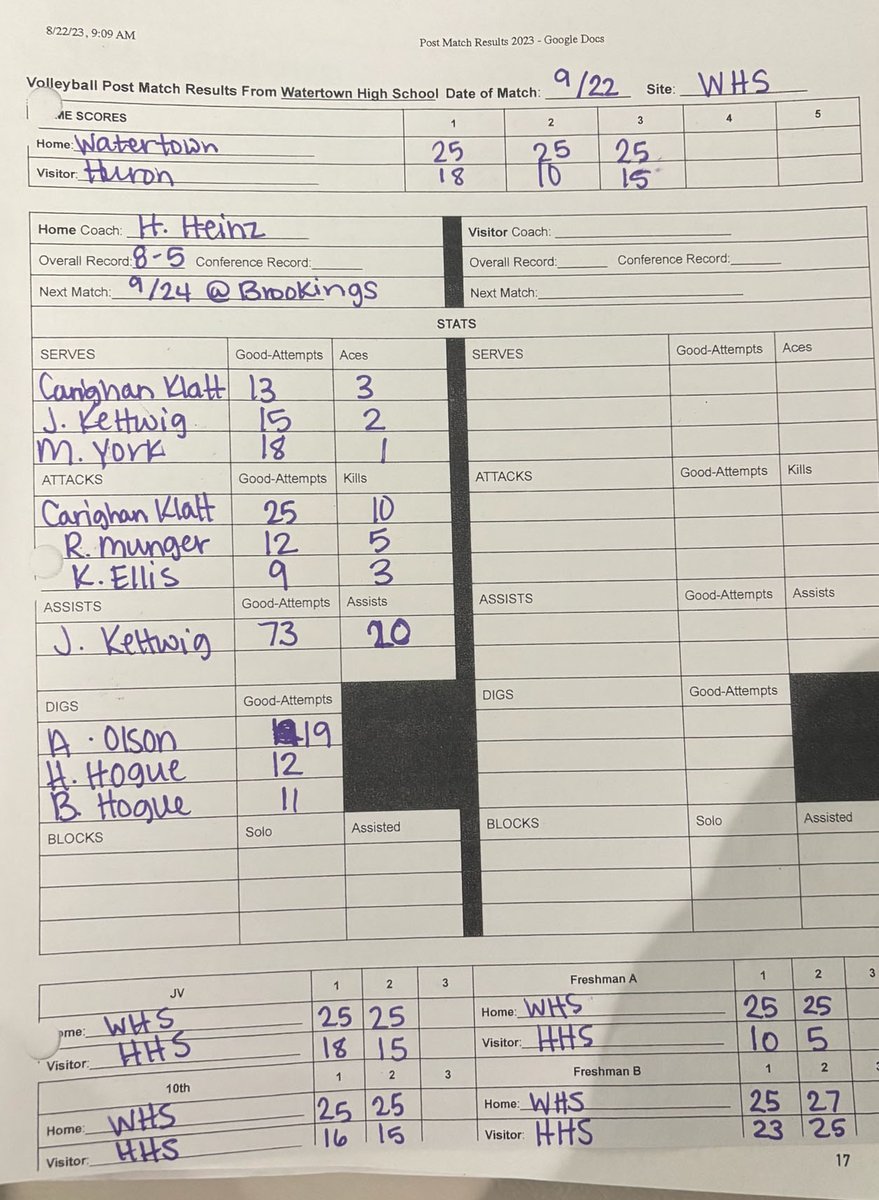 8/22/23, 9:09 AM
Post Match Results 2023 - Google Docs
Volleyball Post Match Results From Watertown High School Date of Match: 9/22 Site: WHS
ME SCORES 1 2 3 4 5
Home: Watertown 25 25 25
Visitor: Huron 18 10 15
Home Coach: H. Heinz Visitor Coach:
Overall Record: 8-5 Conference Record: Overall Record: Conference Record:
Next Match: 9/24 @ Brookings Next Match:
STATS
SERVES Good-Attempts Aces SERVES Good-Attempts Aces
Carighan Klatt 13 3
J. Kettwig 15 2
M. York 18 1
ATTACKS Good-Attempts Kills ATTACKS Good-Attempts Kills
Carighan Klatt 25 10
R. Munger 12 5
K. Ellis 9 3
ASSISTS Good-Attempts Assists ASSISTS Good-Attempts Assists
J. Kettwig 73 20
DIGS Good-Attempts DIGS Good-Attempts
A. Olson 19
H. Hogue 12
B. Hogue 11
BLOCKS Solo Assisted BLOCKS Solo Assisted
JV 1 2 3 Freshman A 1 2 3
ome: WHS 25 25 Home: WHS 25 25
Visitor: HHS 18 15 Visitor: HHS 10 5
10th 1 2 3 Freshman B 1 2
Home: WHS 25 25 Home: WHS 25 27
Visitor: HHS 16 15 Visitor: HHS 23 25
17